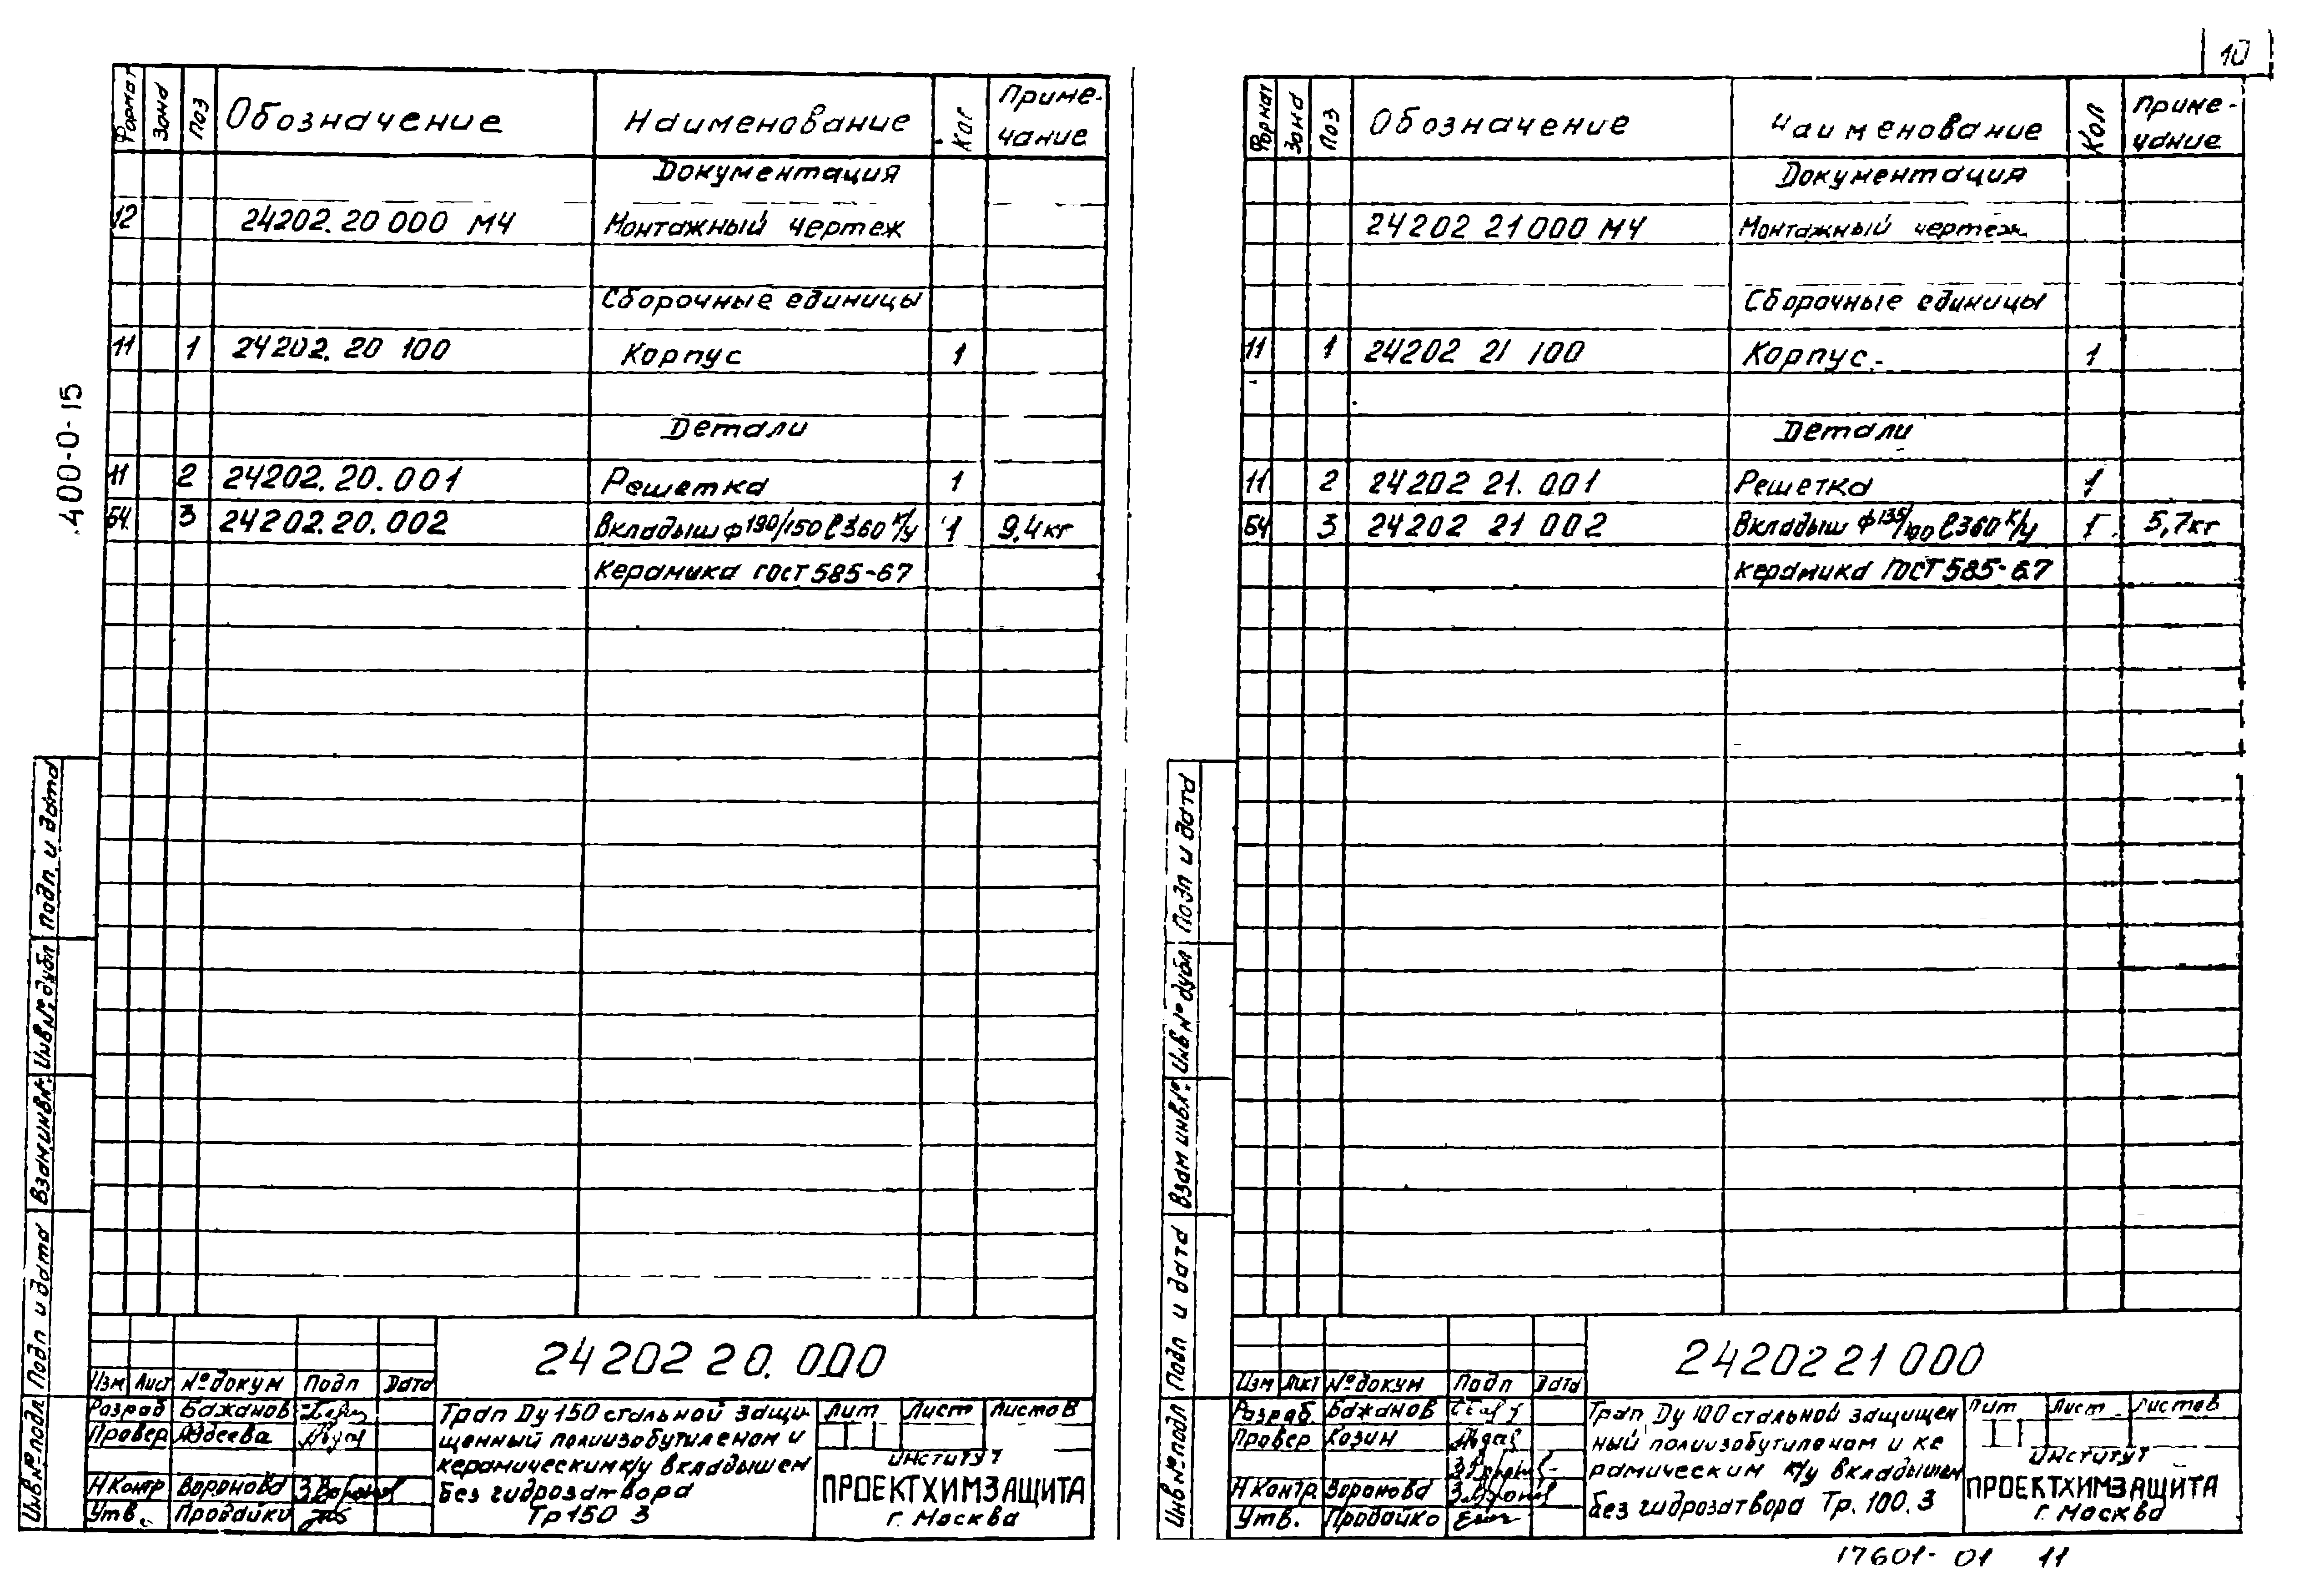 10
400-0-15
Формат Зона Поз Обозначение Наименование Кол Приме-
чание
Документация
12 24202.20 000 МЧ Монтажный чертеж
Сборочные единицы
11 1 24202.20 100 Корпус 1
Детали
11 2 24202.20.001 Решетка 1
БЧ 3 24202.20.002 Вкладыш ф190/150 ℓ360 к/у 1 9,4кг
Керамика ГОСТ 585-67
Подп. и дата
Инв № дубл
Взам инв №
Подп и дата
Инв № подл
24202 20.000
Изм Лист № докум Подп Дата
Разраб Бажанов
Провер Авдеева
Н Контр Воронова
Утв. Продайко
Трап Dу 150 стальной защи-
щенный полиизобутиленом и
керамическим к/у вкладышем
Без гидрозатвора
Тр 150 3
Лит Лист Листов
институт
ПРОЕКТХИМЗАЩИТА
г. Москва
Формат Зона Поз Обозначение Наименование Кол Приме-
чание
Документация
24202 21 000 МЧ Монтажный чертеж
Сборочные единицы
11 1 24202 21 100 Корпус 1
Детали
11 2 24202 21.001 Решетка 1
БЧ 3 24202 21 002 Вкладыш ф135/100 ℓ360 к/у 1 5,7кг
Керамика ГОСТ 585-67
Подп и дата
Инв № дубл
Взам инв №
Подп и дата
Инв № подл
24202 21 000
Изм Лист № докум Подп Дата
Разраб Бажанов
Провер Козин
Н Контр Воронова
Утв. Продайко
Трап Dу 100 стальной защищен
ный полиизобутиленом и ке
рамическим к/у вкладышем
Без гидрозатвора Тр. 100.3
Лит Лист Листов
институт
ПРОЕКТХИМЗАЩИТА
г. Москва
17601-01 11